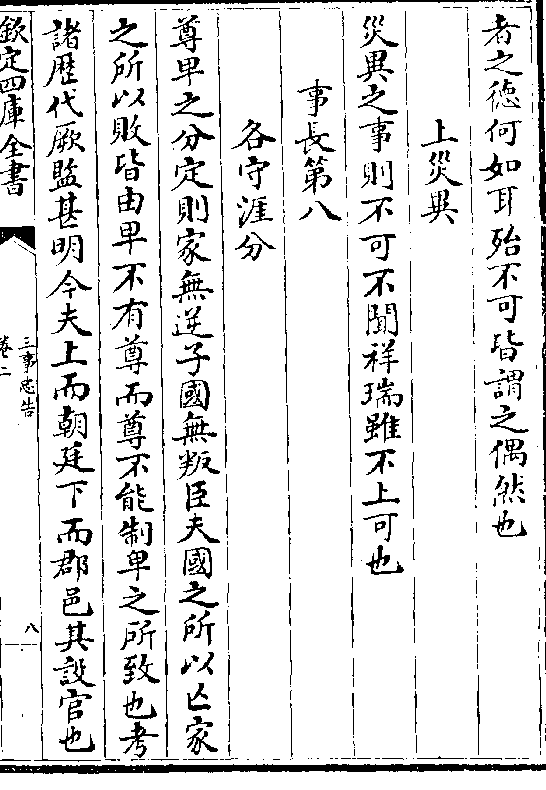 者之徳何如耳殆不可皆謂之偶然也
上災異
災異之事則不可不聞祥瑞雖不上可也
事長第八
各守涯分
尊卑之分定則家無逆子國無叛臣夫國之所以亡家
之所以敗皆由卑不有尊而尊不能制卑之所致也考
諸歴代厥監甚明今夫上而朝廷下而郡邑其設官也
欽定四庫全書
三事忠告
卷二
八